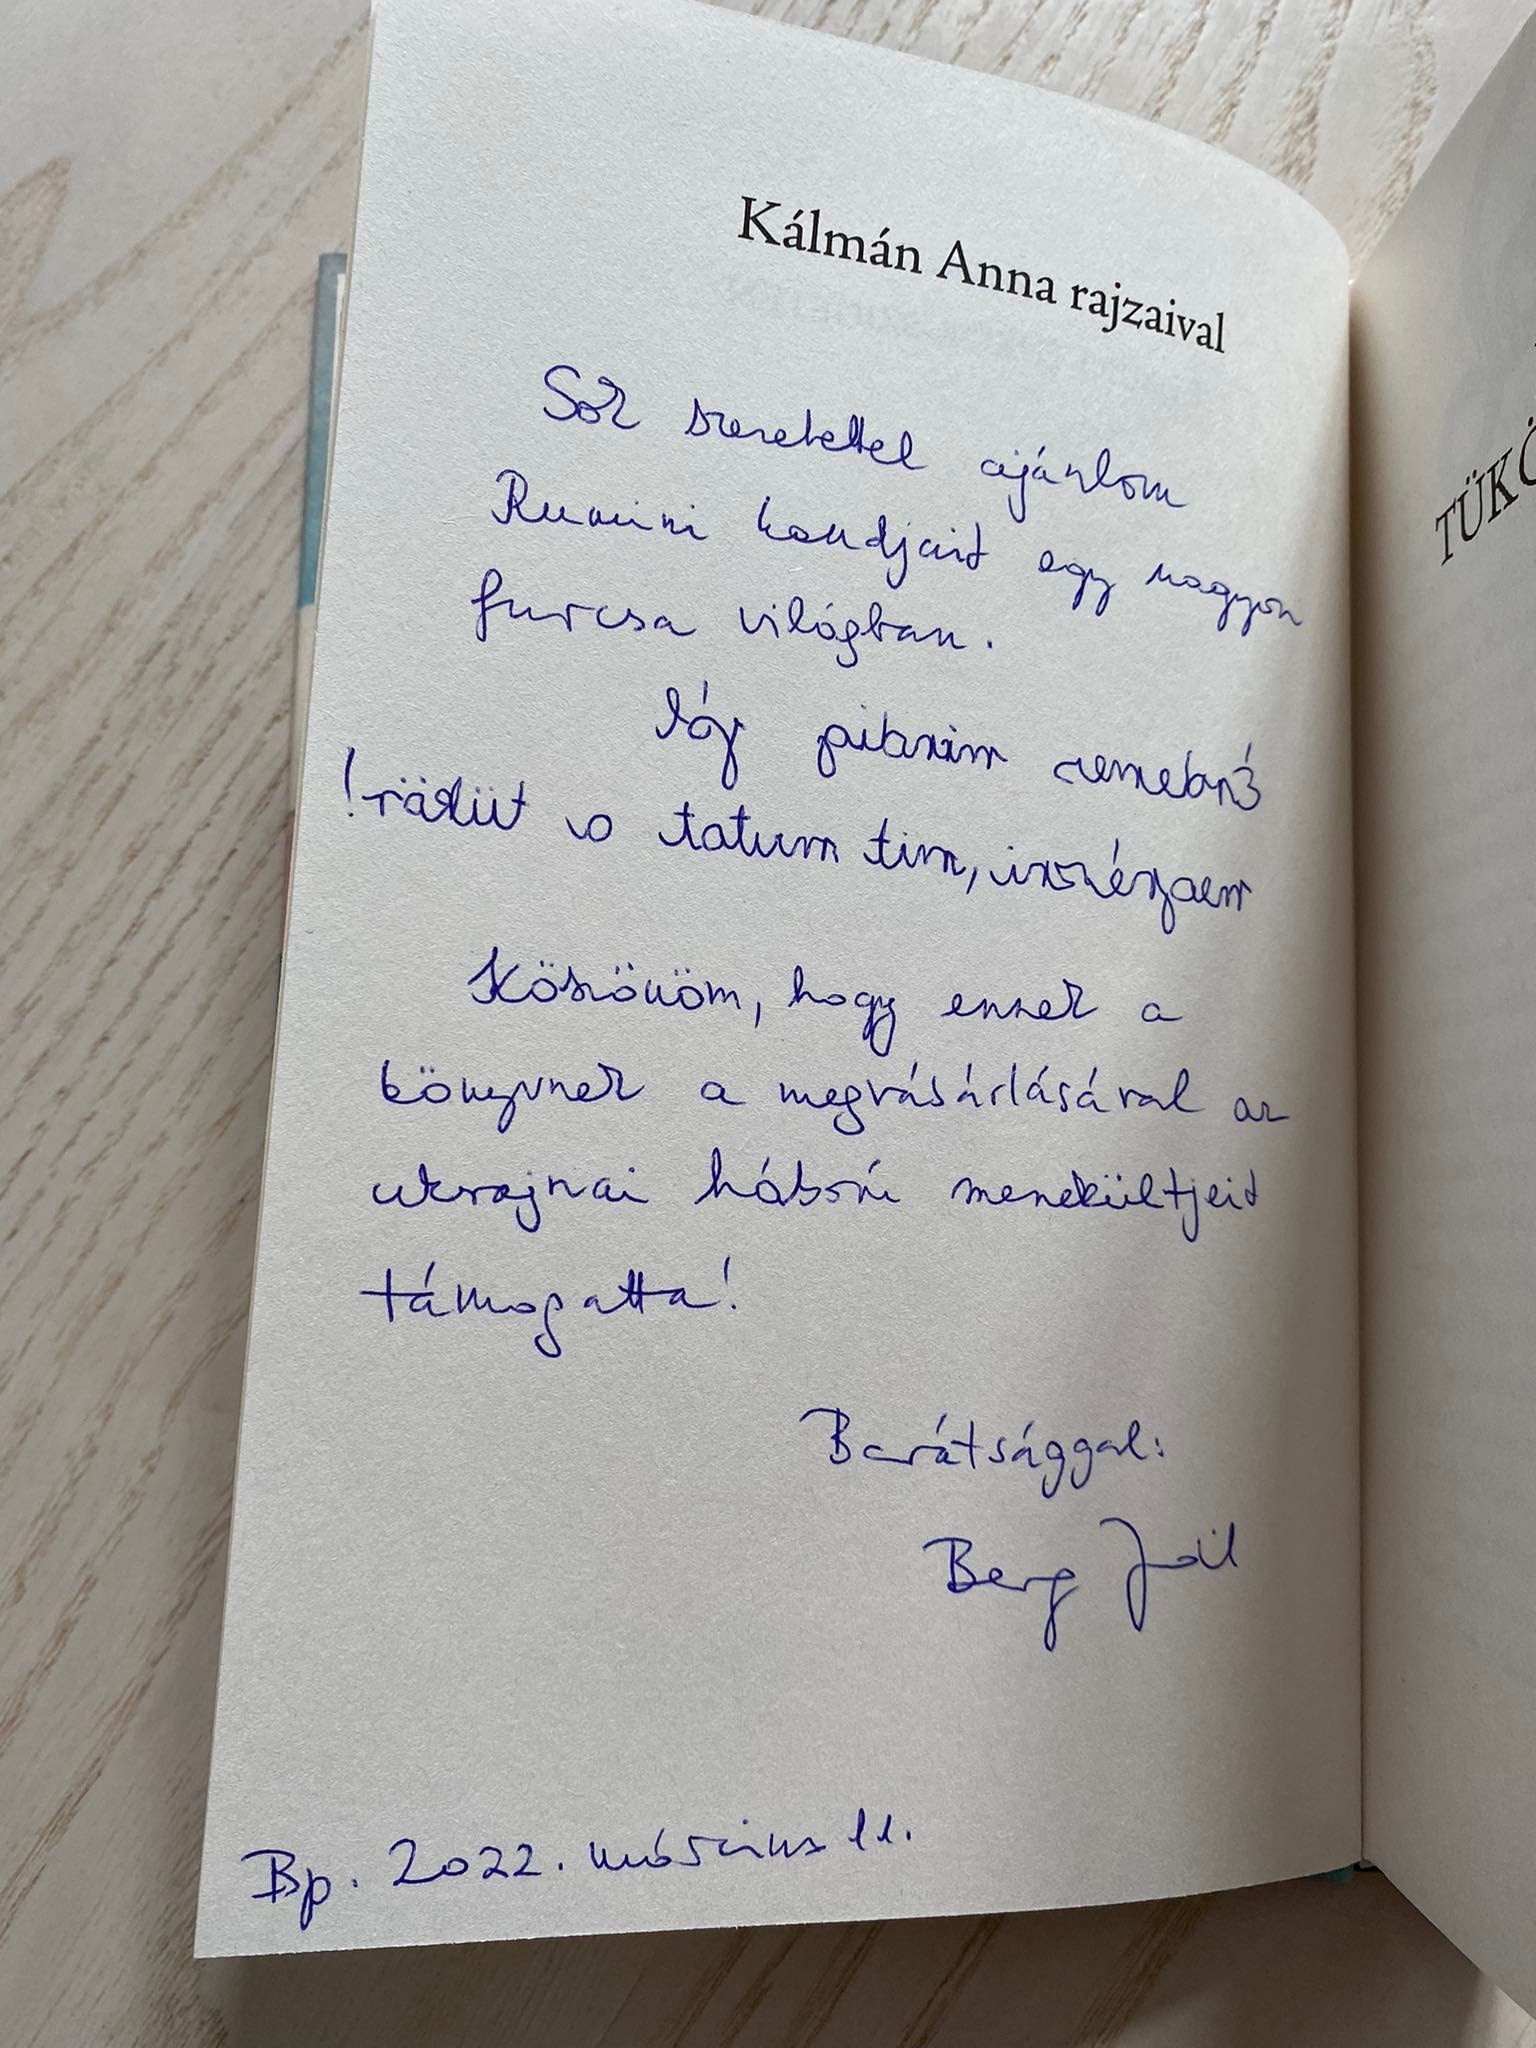 Kálmán Anna rajzaival
Sok szeretettel ajánlom
Rumini kandjait egy nagyon
furcsa világban.
lój gidnim semedrÉ
!röküt a tatum tim, inzéngem
Köszönöm, hogy ennek a
könyvnek a megvásárlásával az
ukrajnai háború menekültjeit
támogatta!
Barátsággal:
Berg Judit
Bp. 2022. március 11.
TÜKÖ